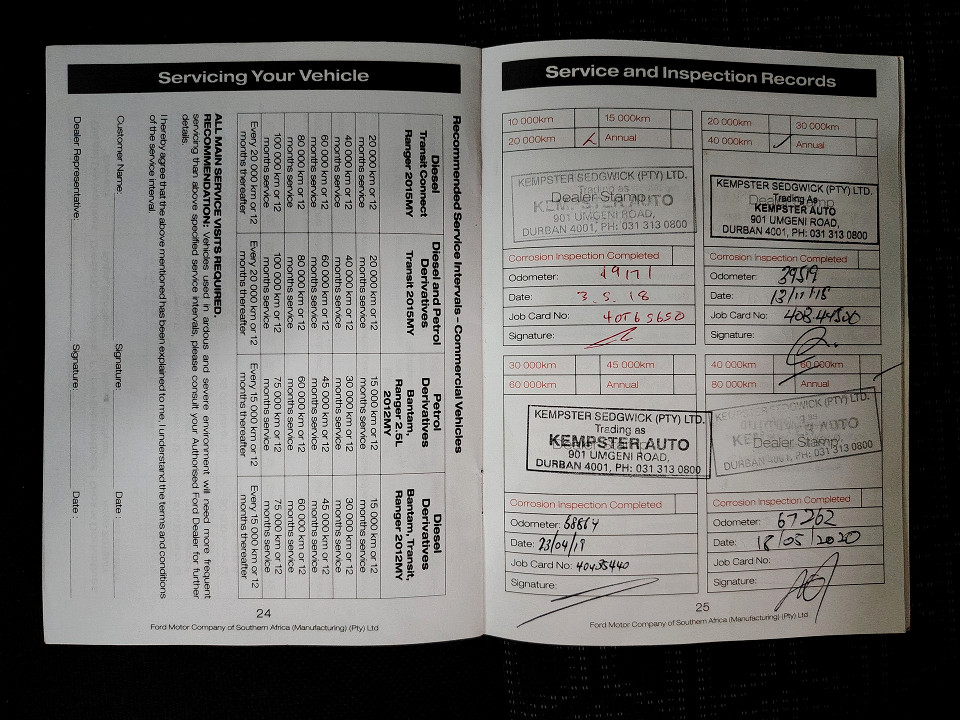 Servicing Your Vehicle
Recommended Service Intervals - Commercial Vehicles
Diesel
Transit Connect
Ranger 2015MY
20 000 km or 12
months service
40 000 km or 12
months service
60 000 km or 12
months service
80 000 km or 12
months service
100 000 km or 12
months service
Every 20 000 km or 12
months thereafter
Diesel and Petrol
Derivatives
Transit 2015MY
20 000 km or 12
months service
40 000 km or 12
months service
60 000 km or 12
months service
80 000 km or 12
months service
100 000 km or 12
months service
Every 20 000 km or 12
months thereafter
Petrol
Derivatives
Bantam,
Ranger 2.5L
2012MY
15 000 km or 12
months service
30 000 km or 12
months service
45 000 km or 12
months service
60 000 km or 12
months service
75 000 km or 12
months service
Every 15 000 km or 12
months thereafter
Diesel
Derivatives
Bantam, Transit,
Ranger 2012MY
15 000 km or 12
months service
30 000 km or 12
months service
45 000 km or 12
months service
60 000 km or 12
months service
75 000 km or 12
months service
Every 15 000 km or 12
months thereafter
ALL MAIN SERVICE VISITS REQUIRED.
RECOMMENDATION: Vehicles used in ardous and severe environment will need more frequent
servicing than above specified service intervals, please consult your Authorised Ford Dealer for further
details.
I hereby agree that the above mentioned has been explained to me, I understand the terms and conditions
of the service interval.
Customer Name: Signature: Date :
Dealer Representative: Signature : Date :
24
Ford Motor Company of Southern Africa (Manufacturing) (Pty) Ltd
Service and Inspection Records
10 000km 15 000km
20 000km Annual
KEMPSTER SEDGWICK (PTY) LTD.
Trading as
Dealer Stamp
KEMPSTER AUTO
901 UMGENI ROAD,
DURBAN 4001, PH: 031 313 0800
Corrosion Inspection Completed
Odometer: 19171
Date: 3.5.18
Job Card No: 40T65650
Signature:
20 000km 30 000km
40 000km Annual
KEMPSTER SEDGWICK (PTY) LTD.
Trading As
KEMPSTER AUTO
901 UMGENI ROAD,
DURBAN 4001, PH: 031 313 0800
Corrosion Inspection Completed
Odometer: 39519
Date: 13/11/18
Job Card No:
Signature:
30 000km 45 000km
60 000km Annual
KEMPSTER SEDGWICK (PTY) LTD.
Trading as
KEMPSTER AUTO
901 UMGENI ROAD,
DURBAN 4001, PH: 031 313 0800
Corrosion Inspection Completed
Odometer:
Date: 23/04/19
Job Card No:
Signature:
40 000km 60 000km
80 000km Annual
KEMPSTER SEDGWICK (PTY) LTD.
Trading as
KEMPSTER AUTO
Dealer Stamp
DURBAN 4001, PH: 031 313 0800
Corrosion Inspection Completed
Odometer: 67262
Date: 18/05/2020
Job Card No:
Signature:
25
Ford Motor Company of Southern Africa (Manufacturing) (Pty) Ltd